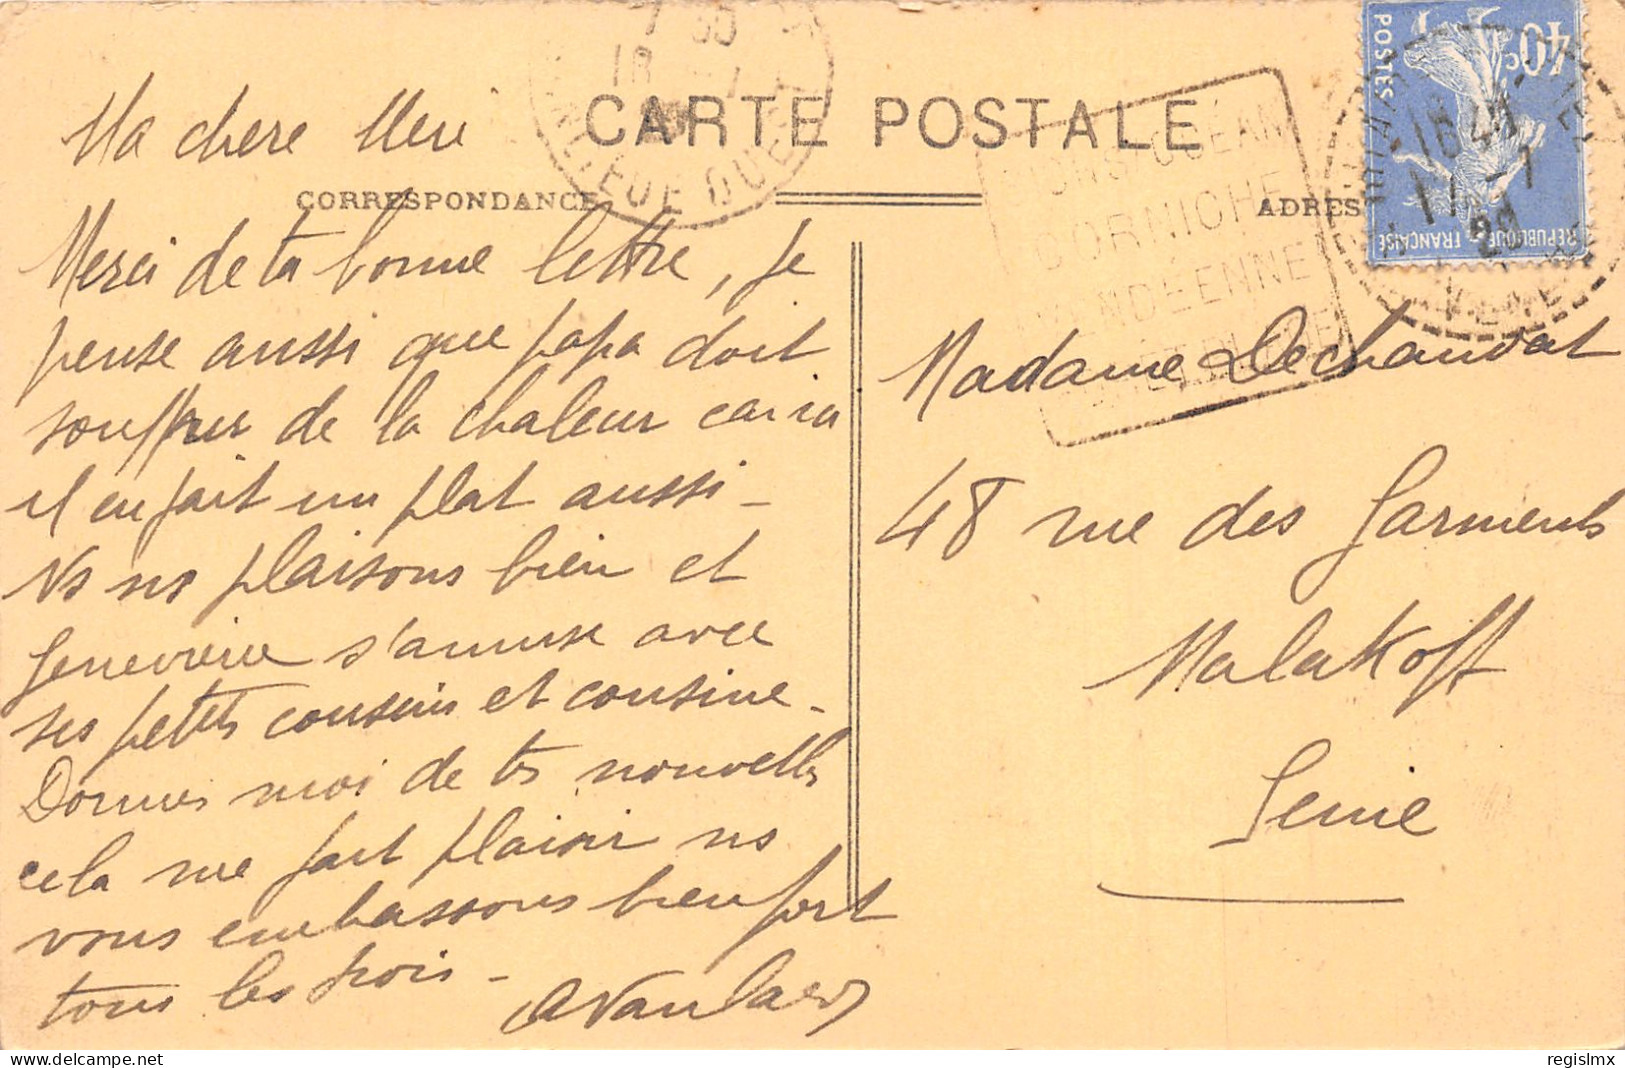 CARTE POSTALE
CORRESPONDANCE
ADRES
Ma chere Mere
Merci de ta bonne lettre, je
pense aussi que papa doit
souffrir de la chaleur car ici
il en fait un plat aussi -
Ns ns plaisons bien et
Genevieve s'amuse avec
ses petits cousins et cousine -
Donnes moi de tes nouvelles
cela me fait plaisir ns
vous embassons bien fort
tous les trois -
Madame Dechauvat
48 rue des Sarments
Malakoff
Seine
40c
POSTES
REPUBLIQUE FRANÇAISE
MONTS/OCÉAN
CORNICHE
VENDÉENNE
BANLIEUE OUEST
16 40
17 - 7
VENDEE
regislmx